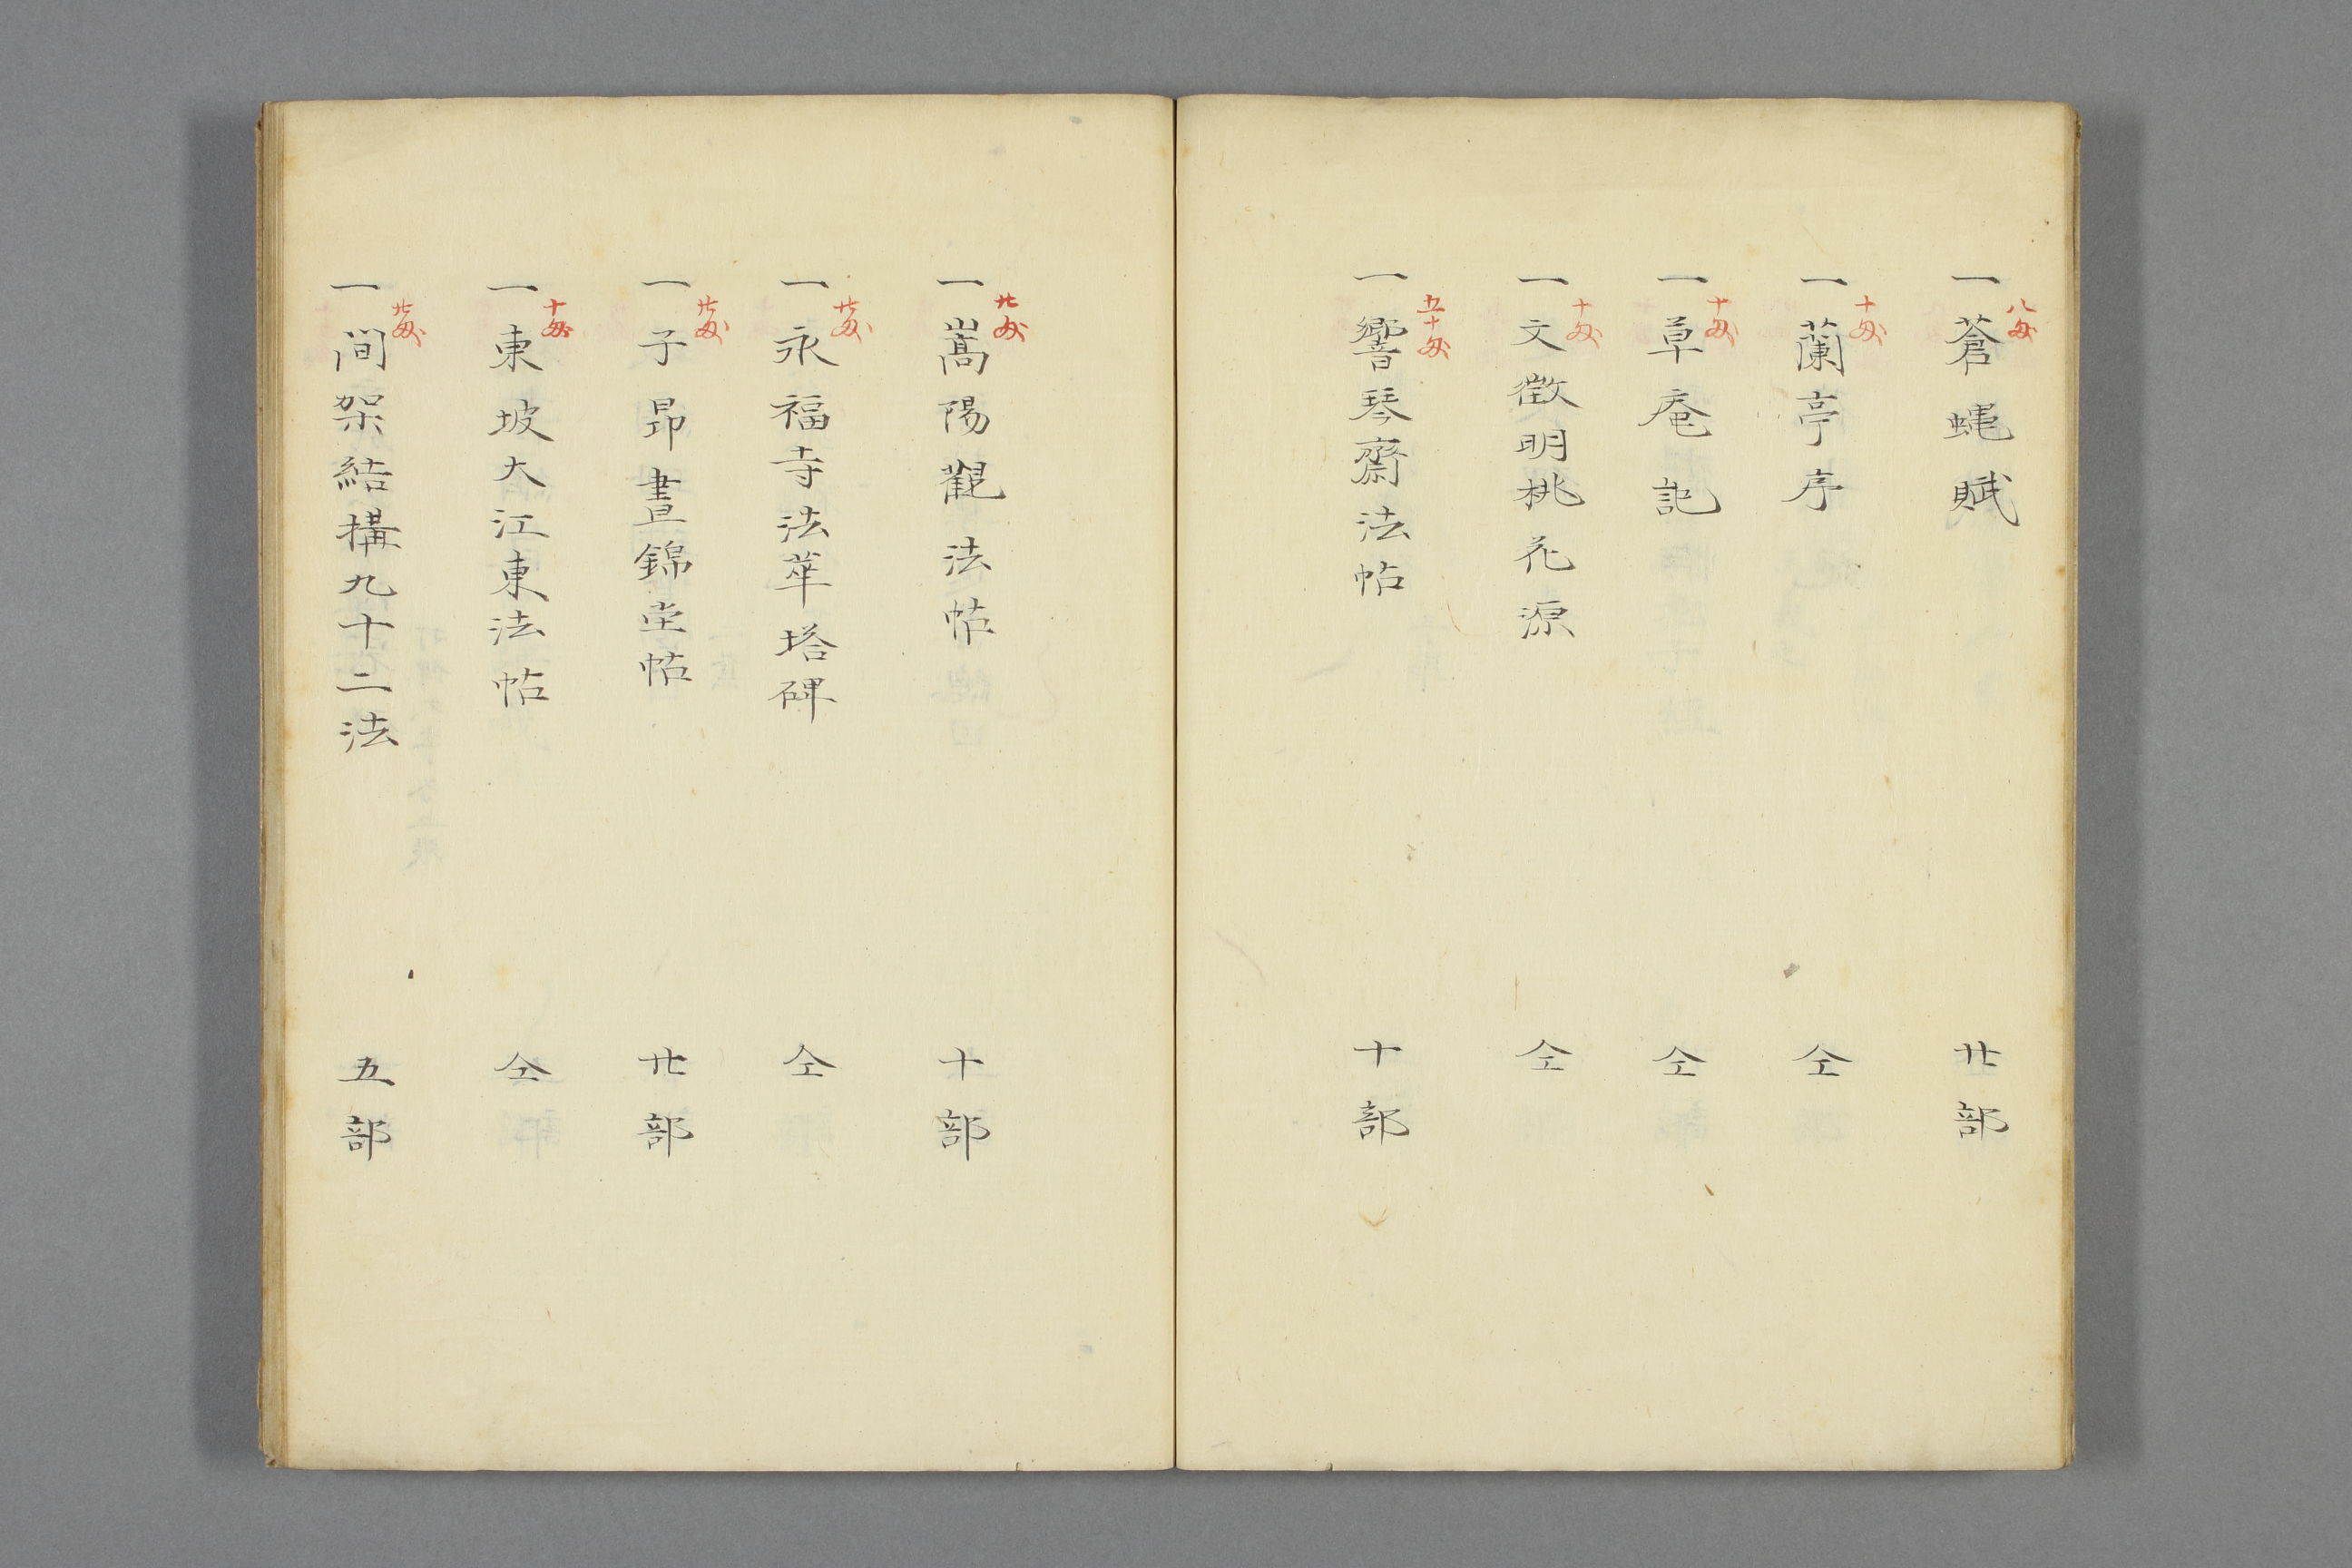 八匁
一蒼蝿賦 廿部
十匁
一蘭亭序 仝
十匁
一草庵記 仝
十匁
一文徴明桃花源 仝
五十匁
一響琴齋法帖 十部
廿匁
一嵩陽觀法帖 十部
廿匁
一永福寺法華塔碑 仝
廿匁
一子昂晝錦堂帖 廿部
十匁
一東坡大江東法帖 仝
廿匁
一間架結搆九十二法 五部